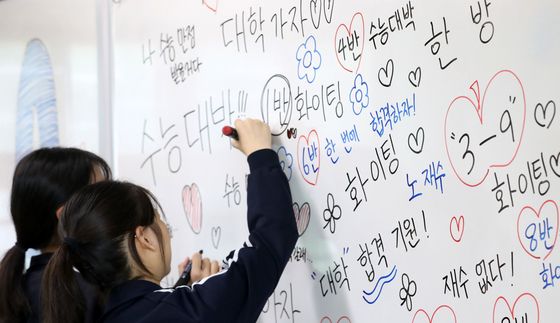 나 수능 만점
받을거다
대학 가자
4반
수능대박
한 방
수능 대박!!!
1반 화이팅
합격하자!
6반
한 번에
화이팅
노 재수
"3-9"
화이팅
8반
수능
"대학" 합격 기원!
재수 없다!
가자
화